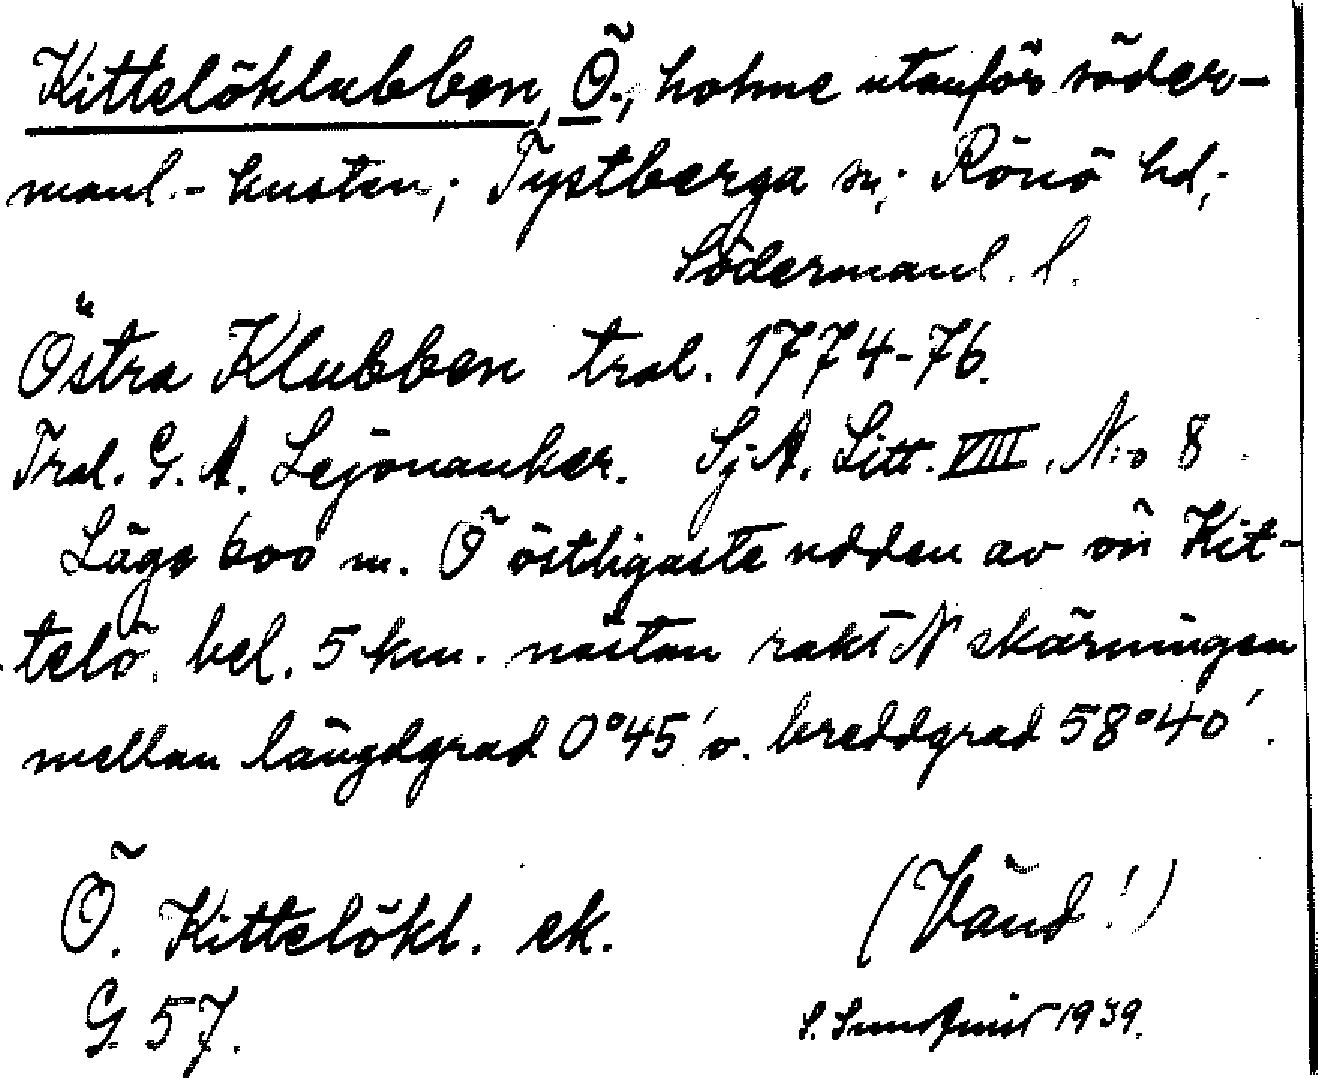 Kittelöklubben, Ö., holme utanför söder-
manl.-kusten; Tystberga sn; Rönö hd;
Södermanl. l.
Östra Klubben tral. 1774-76.
Tral. G. A. Lejonanker. Sj A. Litt. VIII. N:o 8
Läge 600 m. Ö östligaste udden av ön Kit-
telö. bel. 5 km. nästan rakt N skärningen
mellan längdgrad 0°45' o. breddgrad 58°40'.
Ö. Kittelökl. ek. (Vänd!)
G 57. S. 1939.